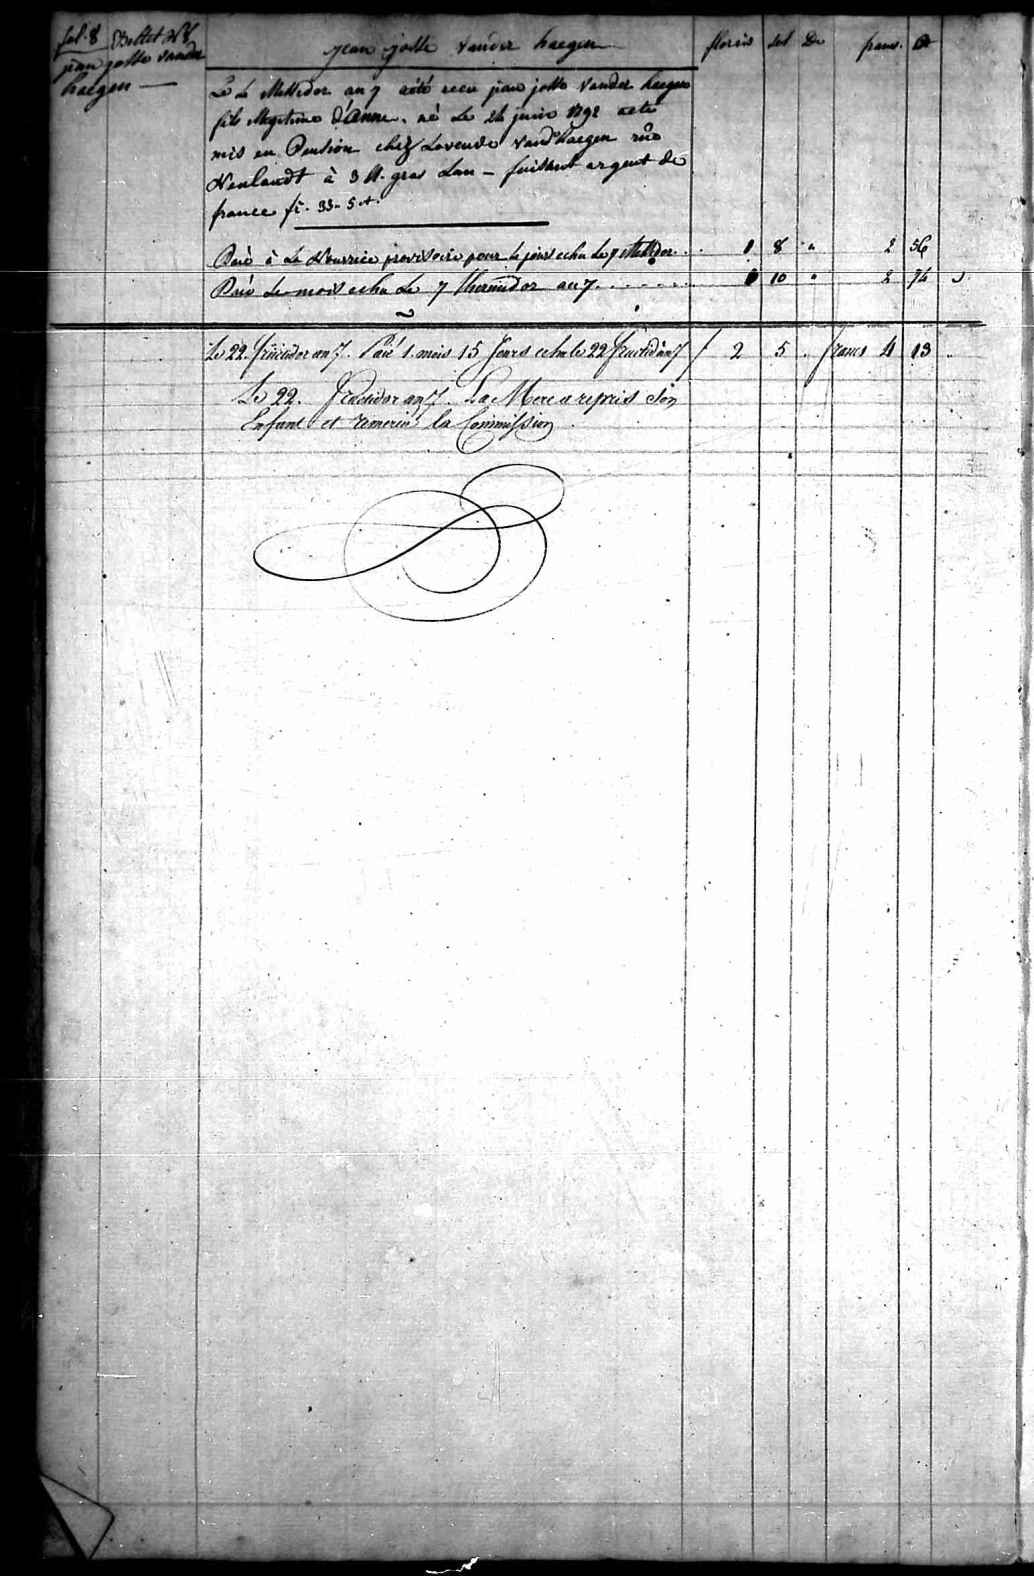 fol. 8 Billet N 8
jean josse vander
haegen —
jean josse vander haegen
florins sol De franc. Ct
Le 2 Messidor an 7 a été recu jean josse vander haegen
fils illegitime d'Anne. né Le 24 juin 1792 acté
mis en Pension chez Lavende Vand'haegen rüe
Neulandt à 3 ll. gros Lan — faisant argent de
france fr. 33-5 ct.
Paié à La Nourrice provisoire pour le jours echu le 7 Messidor . . 1 8 " 2 56
Paié Le mois echu Le 7 thermidor an 7 . . . . . . 1 10 " 2 74
Le 22. fructidor an 7. Paié 1. mois 15 Jours echu le 22 fructid an 7 f 2 5 . francs 4 13 ..
Le 22. fructidor an 7. La Mere a repris son
Enfant et remercié la Commission .